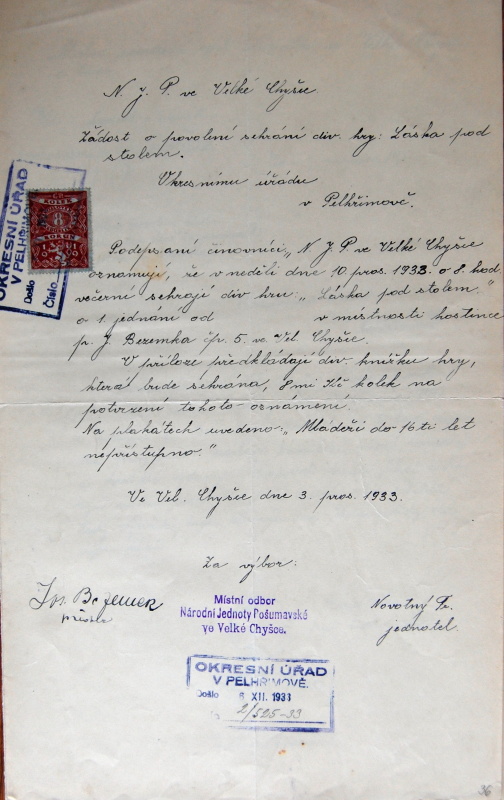 N. J. P. ve Velké Chyšce
Žádost o povolení sehrání div. hry: Láska pod
stolem.
Okresnímu úřadu
v Pelhřimově.
OKRESNÍ ÚŘAD
V PELHŘIMOVĚ
Došlo
Číslo
KOLEK
8
KORUN
Podepsaní činovníci „N J P ve Velké Chyšce
oznamují, že v neděli dne 10. pros. 1933. o 8. hod
večerní sehrají div. hru: „Láska pod stolem.“
o 1. jednání od v místnosti hostince
p. J. Bezemka čp. 5. ve Vel. Chyšce.
V příloze předkládají div. knížku hry,
která bude sehrána, 8mi Kč kolek na
potvrzení tohoto oznámení.
Na plakátech uvedeno: „Mládeži do 16ti let
nepřístupno.“
Ve Vel. Chyšce dne 3. pros. 1933.
Za výbor:
Jos. Bezemek
Místní odbor
Národní Jednoty Pošumavské
ve Velké Chyšce.
Novotný Fr.
jednatel.
OKRESNÍ ÚŘAD
V PELHŘIMOVĚ.
Došlo 6 XII. 1933
2/525-33
36